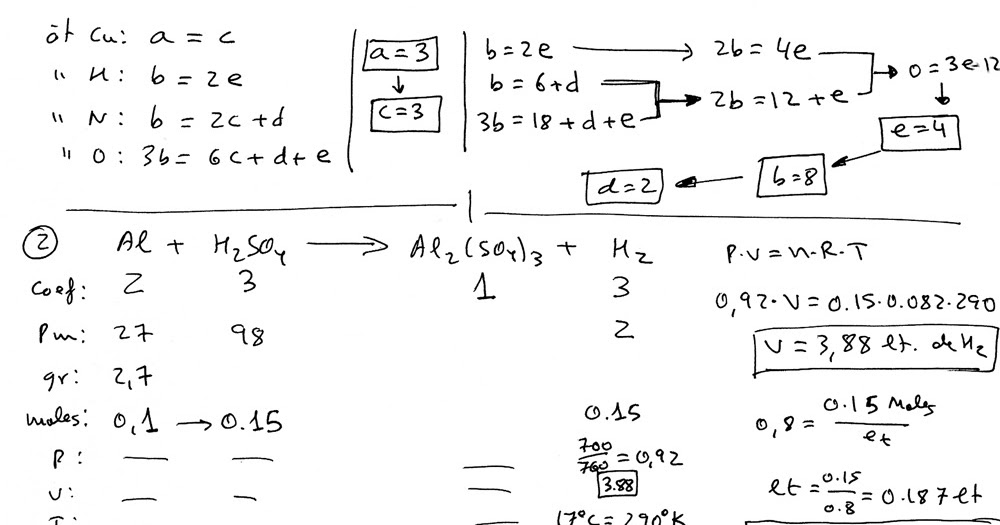 öt Cu: a = c
" H: b = 2e
" N: b = 2c + d
" O: 3b = 6c + d + e
a = 3
c = 3
b = 2e → 2b = 4e
b = 6 + d
3b = 18 + d + e → 2b = 12 + e
0 = 3e - 12
e = 4
b = 8
d = 2
② Al + H₂SO₄ → Al₂(SO₄)₃ + H₂
coef: 2 3 1 3
Pm: 27 98 2
gr: 2,7
moles: 0,1 → 0.15 0.15
P: — — — 700/760 = 0,92
V: — — — 3.88
T: — 17°C = 290°K
P.V = n.R.T
0,92 · V = 0.15 · 0.082 · 290
V = 3,88 lt. de H₂
0,8 = 0.15 Moles / lt
lt = 0.15/0.8 = 0.187 lt